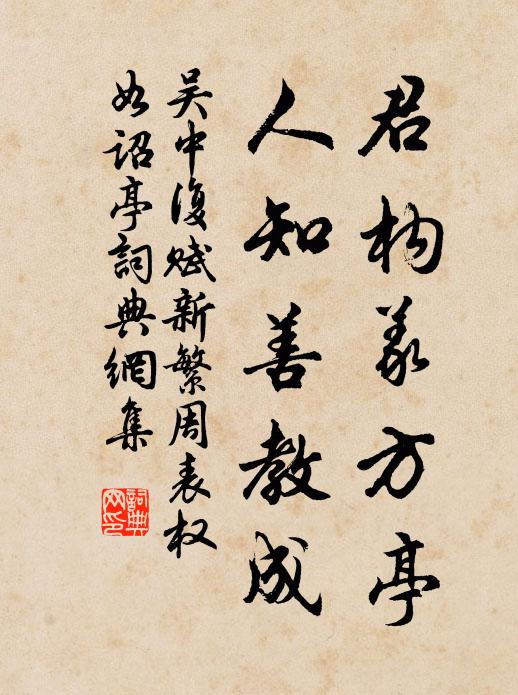 君构义方亭
人知善教成
吴中復赋新繁周表权
如诏亭詞典網集
詞典
网印